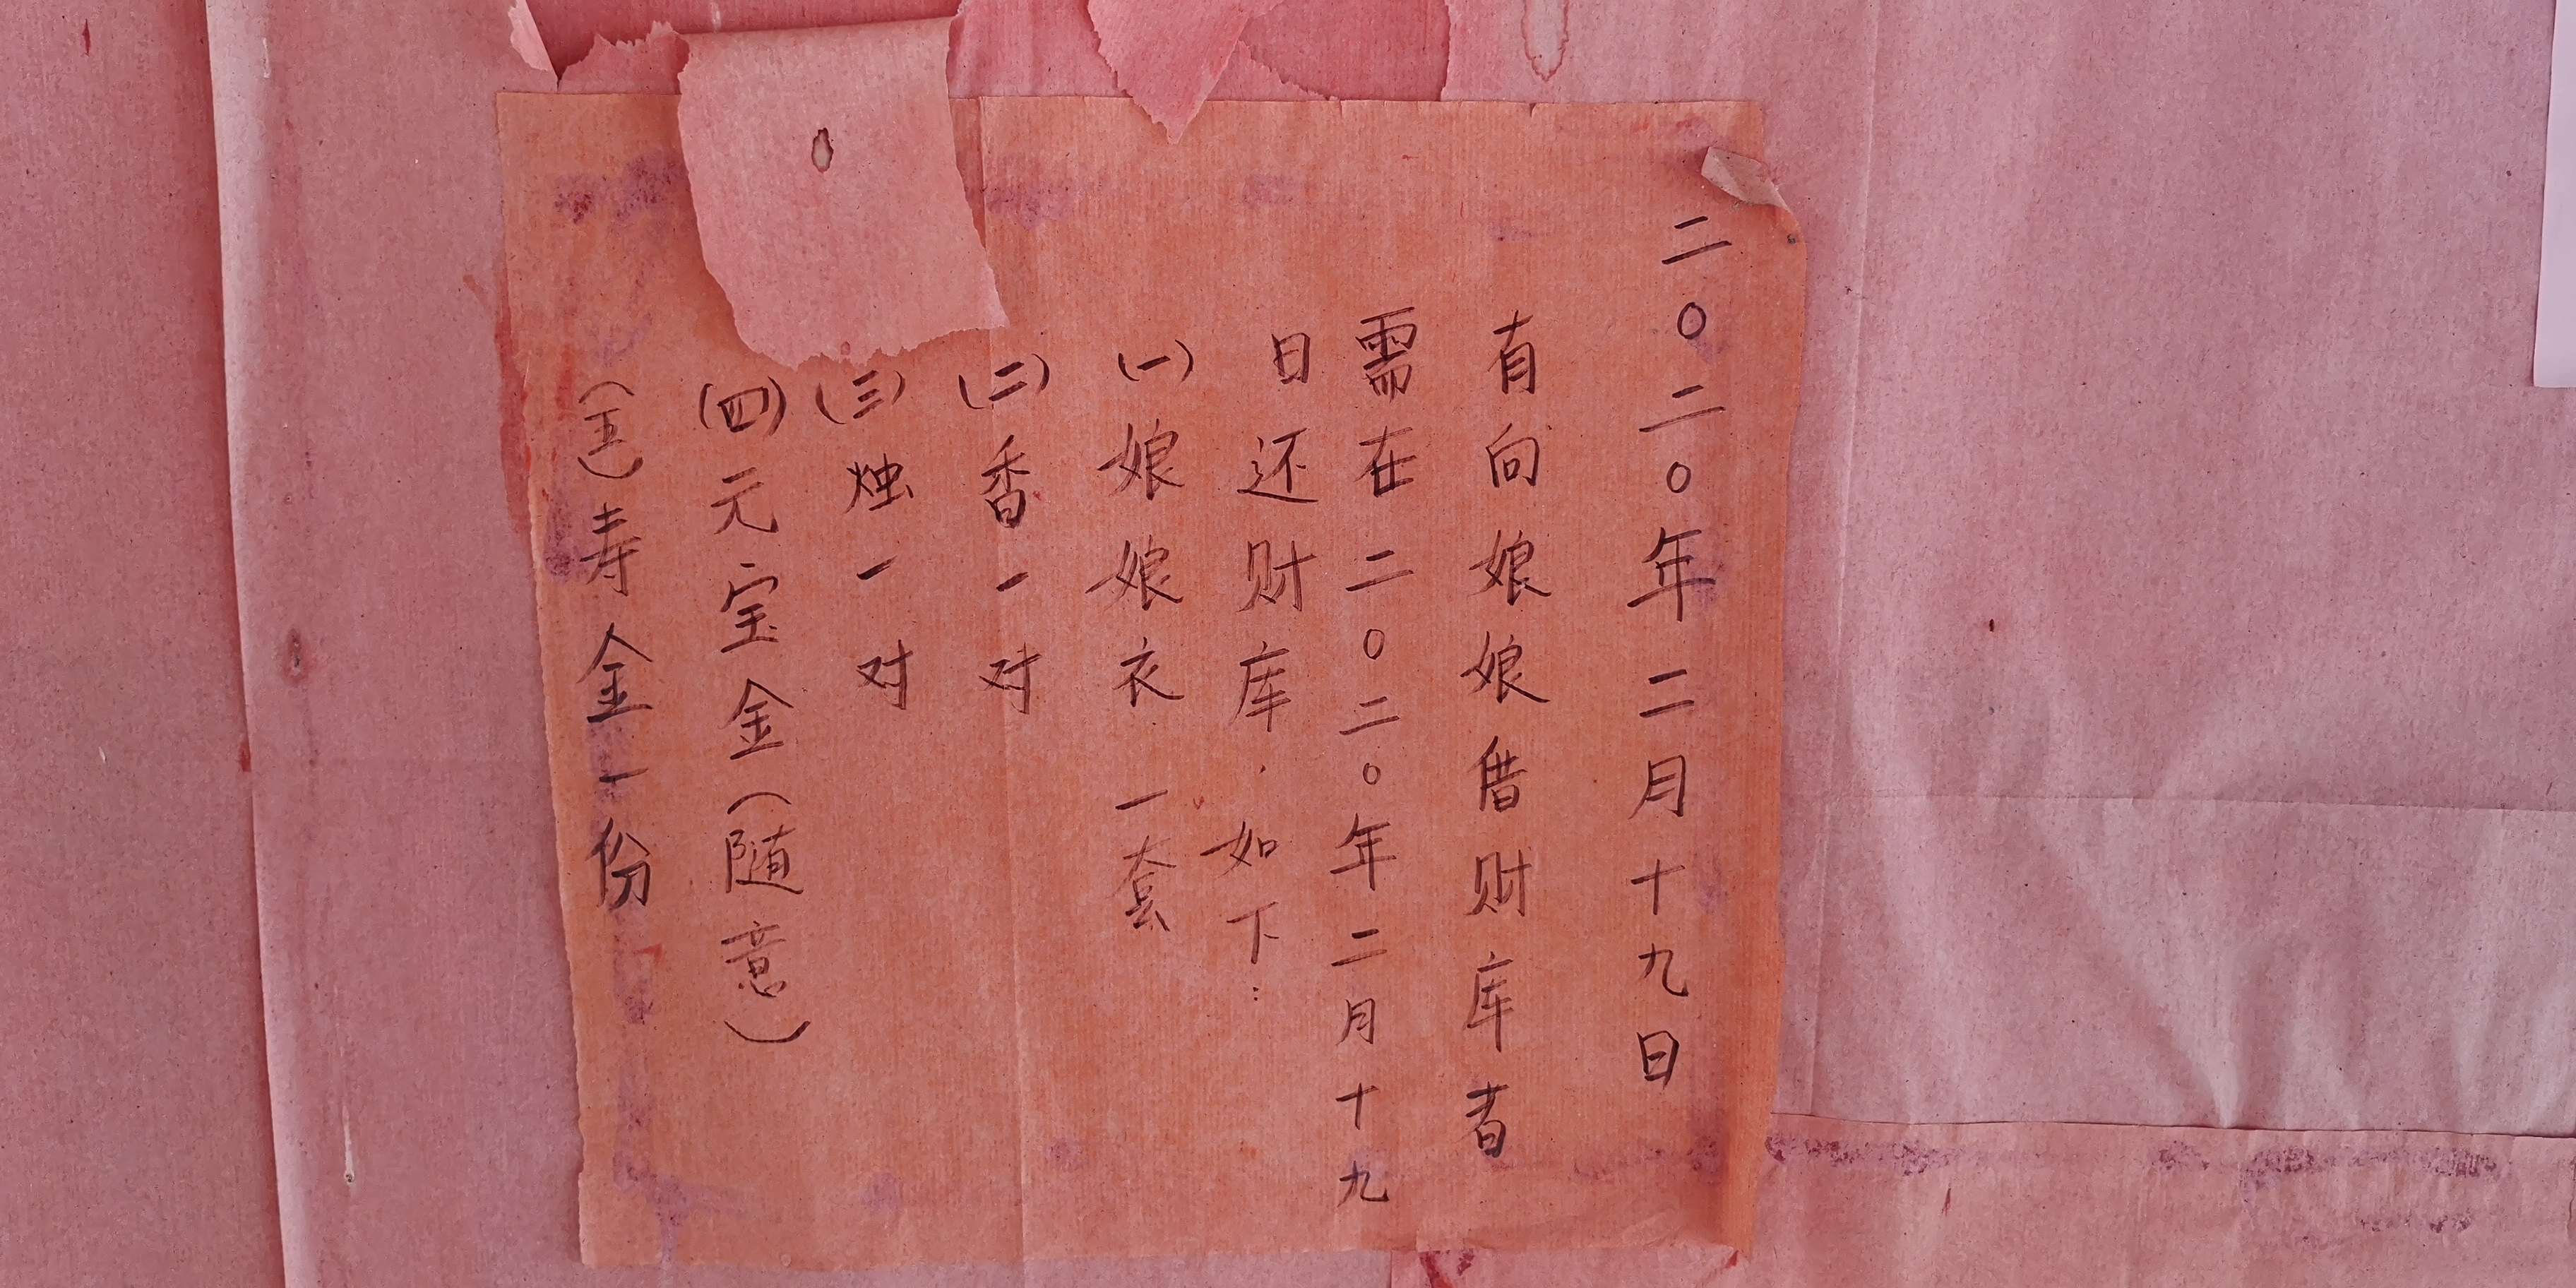 二〇二〇年二月十九日
有向娘娘借财库者
需在二〇二〇年二月十九
日还财库．如下：
（一）娘娘衣一套
（二）香一对
（三）烛一对
（四）元宝金（随意）
（五）寿金一份